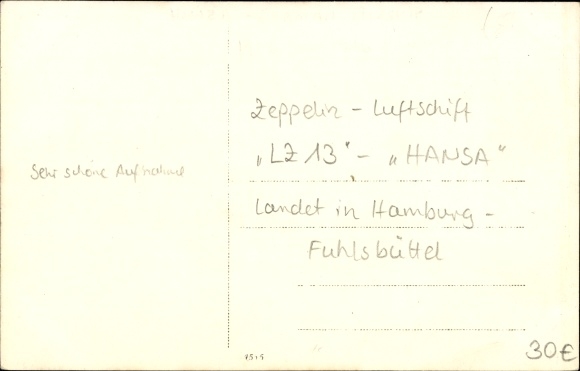 Zeppelin - Luftschiff
„LZ 13" - „HANSA"
Sehr schöne Aufnahme
landet in Hamburg -
Fuhlsbüttel
30€